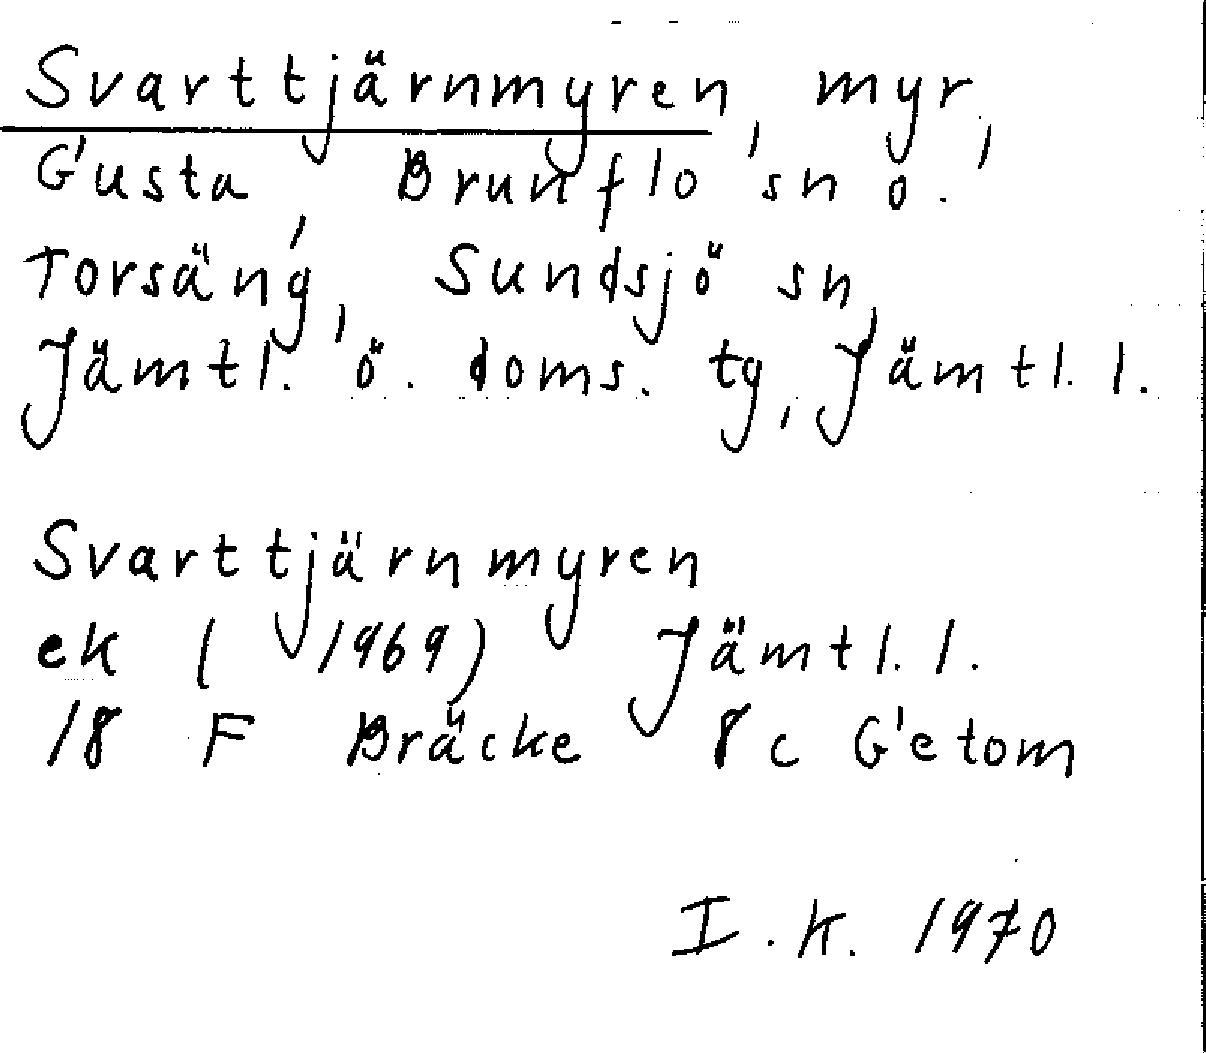 Svarttjärnmyren, myr,
Gusta, Brunflo sn o.
Torsäng, Sundsjö sn,
Jämtl. ö. doms. tg, Jämtl. l.
Svarttjärnmyren
ek ( 1969) Jämtl. l.
18 F Bräcke 8 c Getom
I. K. 1970